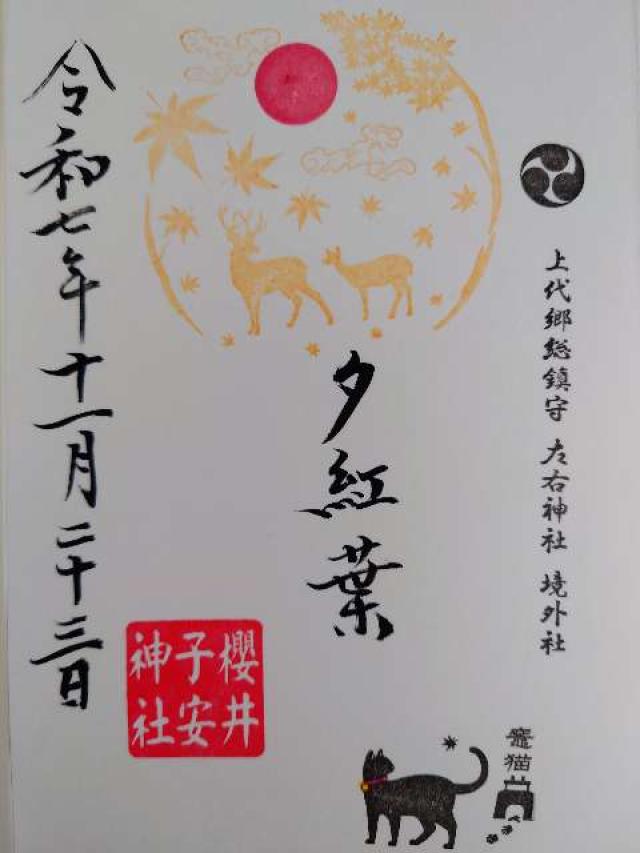 上代郷総鎮守 左右神社 境外社
夕紅葉
櫻井
子安
神社
令和七年十一月二十三日
竈猫